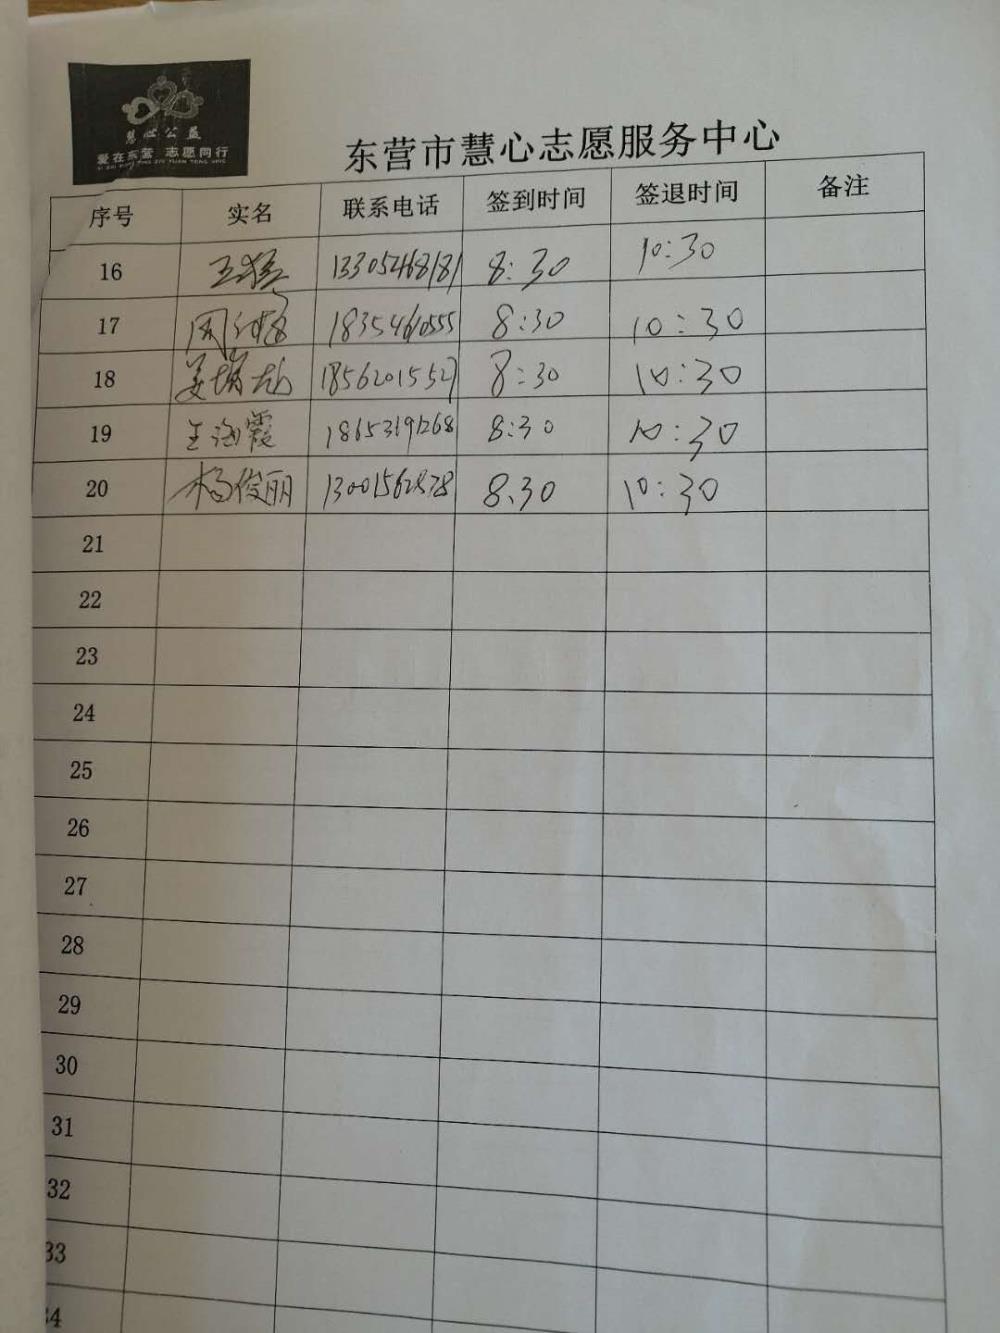 慧心公益
爱在东营 志愿同行
东营市慧心志愿服务中心
序号 实名 联系电话 签到时间 签退时间 备注
16 王猛 13305468181 8:30 10:30
17 周 18354610555 8:30 10:30
18 姜 18562015527 8:30 10:30
19 王海霞 18653191268 8:30 10:30
20 杨俊丽 13001562878 8:30 10:30
21
22
23
24
25
26
27
28
29
30
31
32
33
34